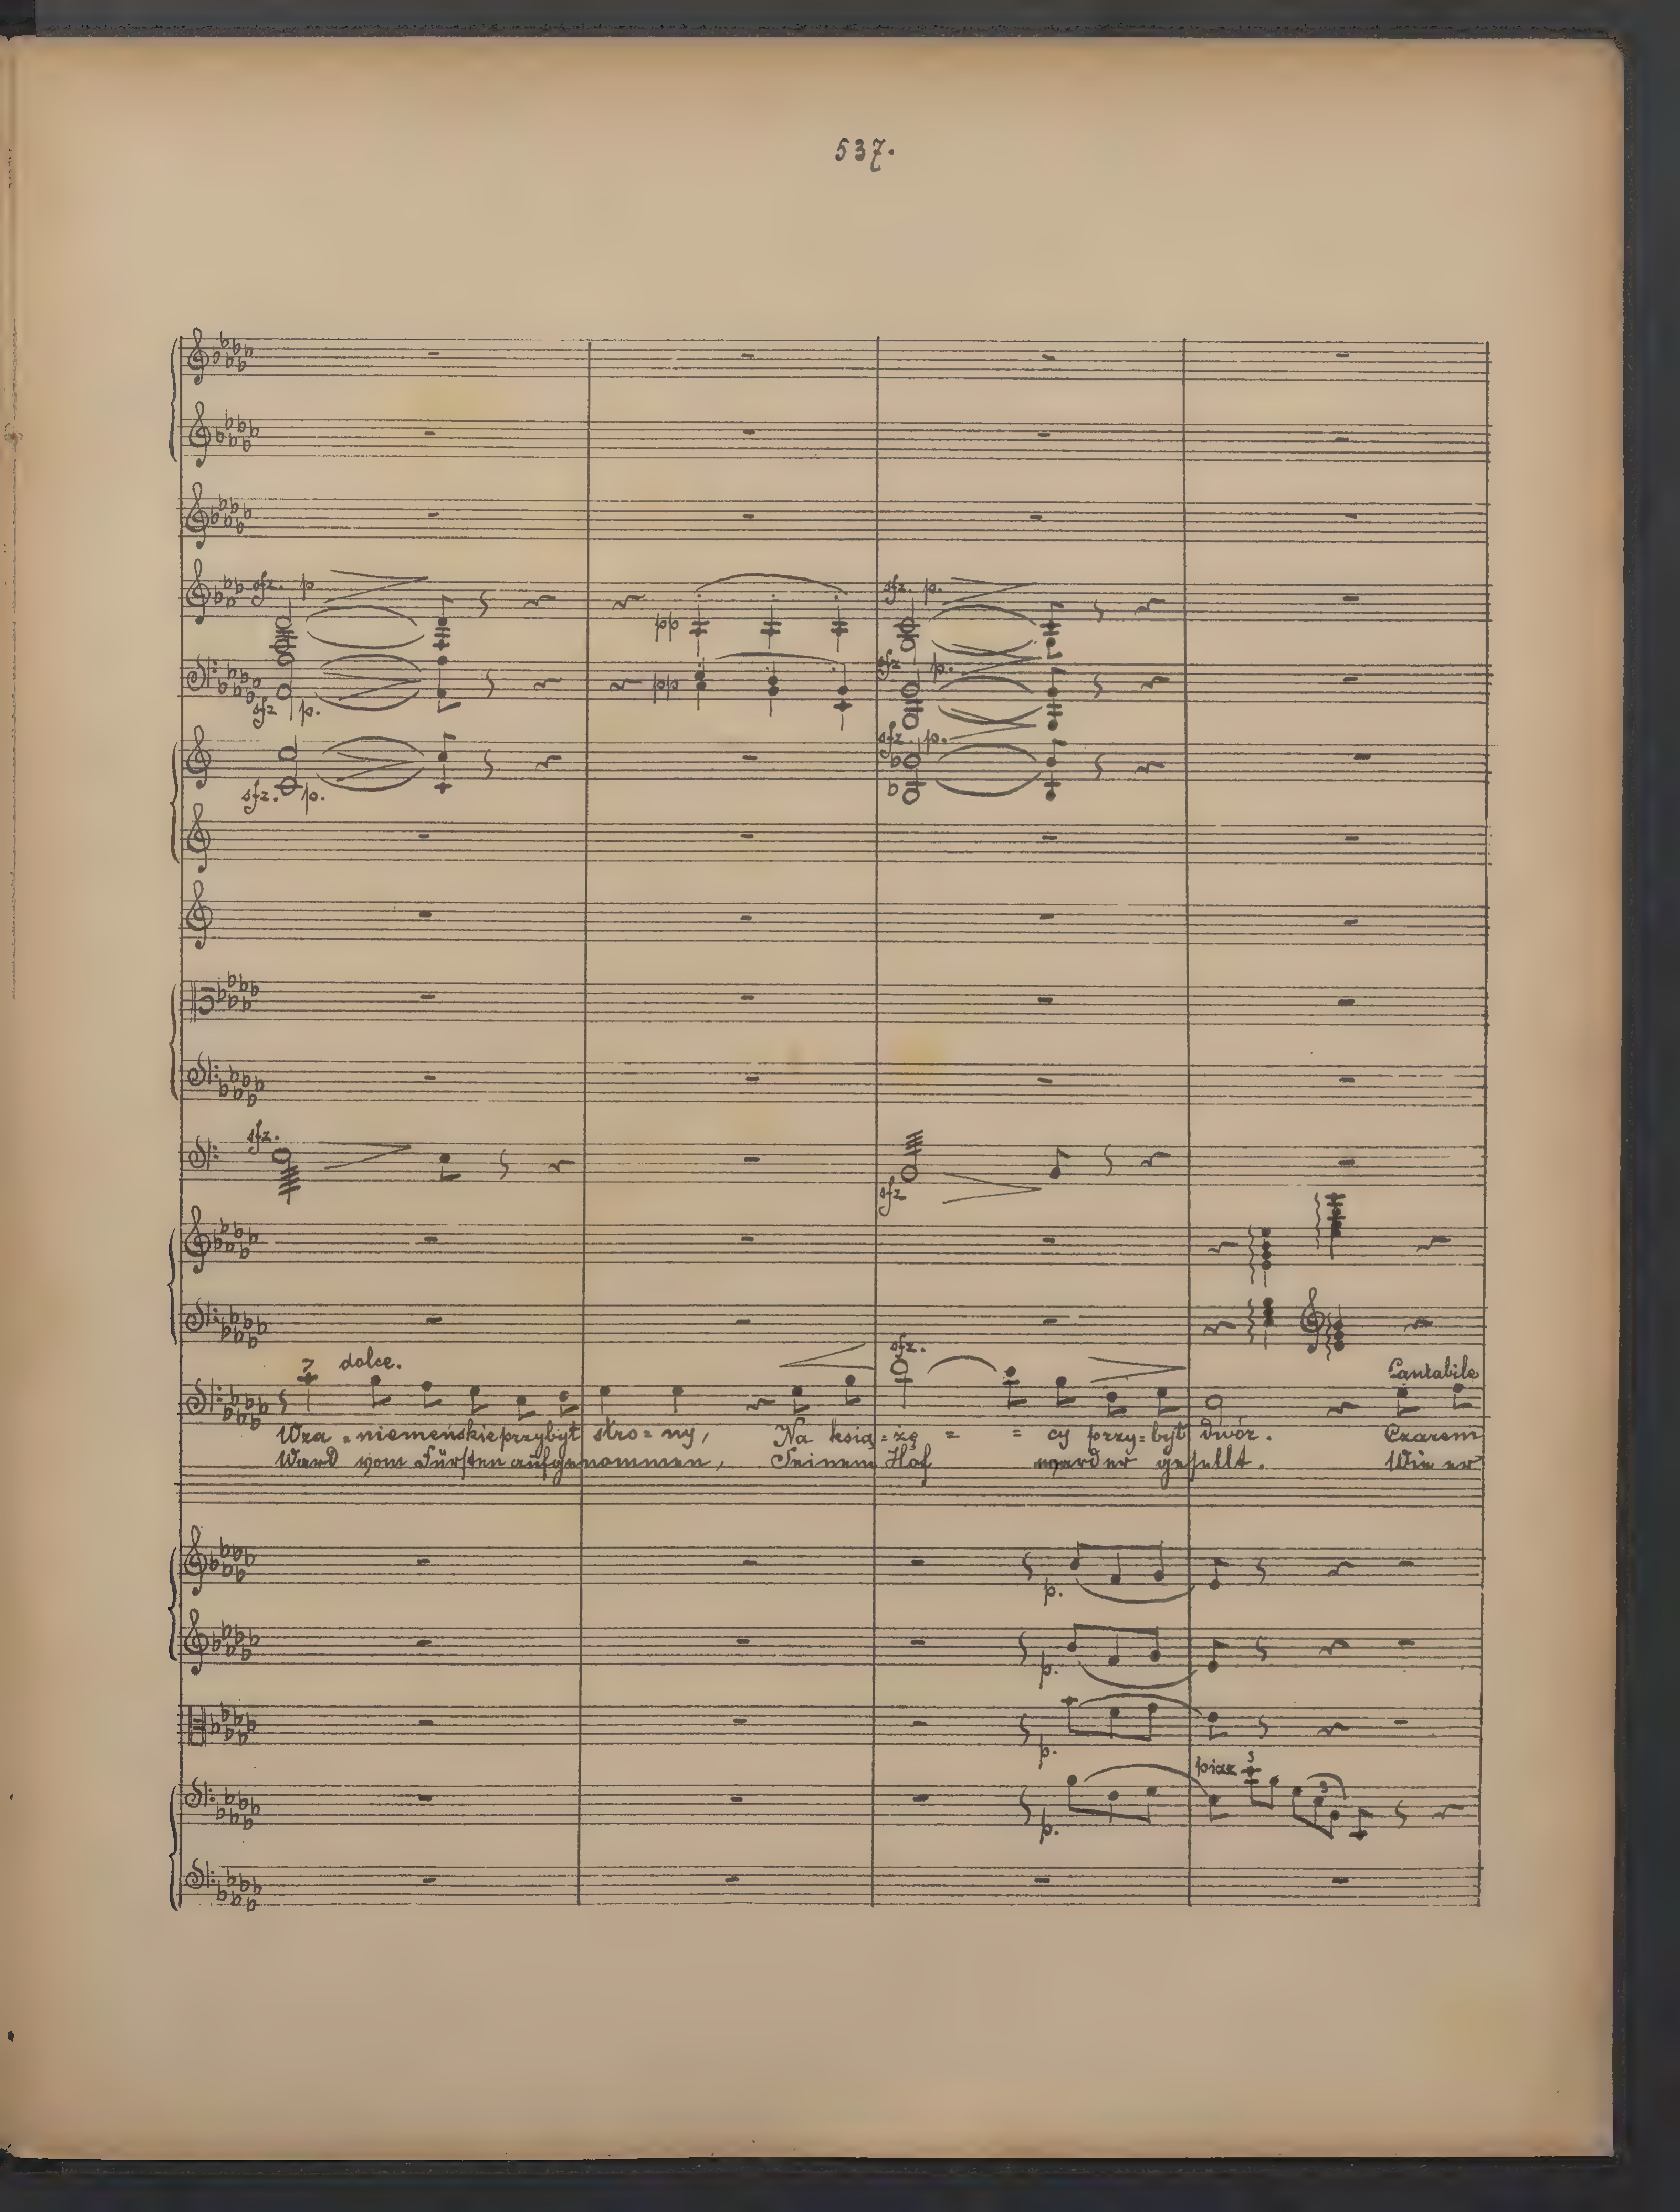 537.
sfz. p
sfz. p.
pp
sfz p.
pp
sfz p.
sfz. p.
sfz. p.
sfz.
sfz
dolce.
sfz.
Cantabile
Wza = niemeńskie przybył stro = ny, Na ksią = żę = = cy przy = był dwór. Czarem
Ward vom Fürsten aufgenommen, Seinem Hof ward er gesellt. Wie er
p.
p.
p.
pizz 3
3
p.